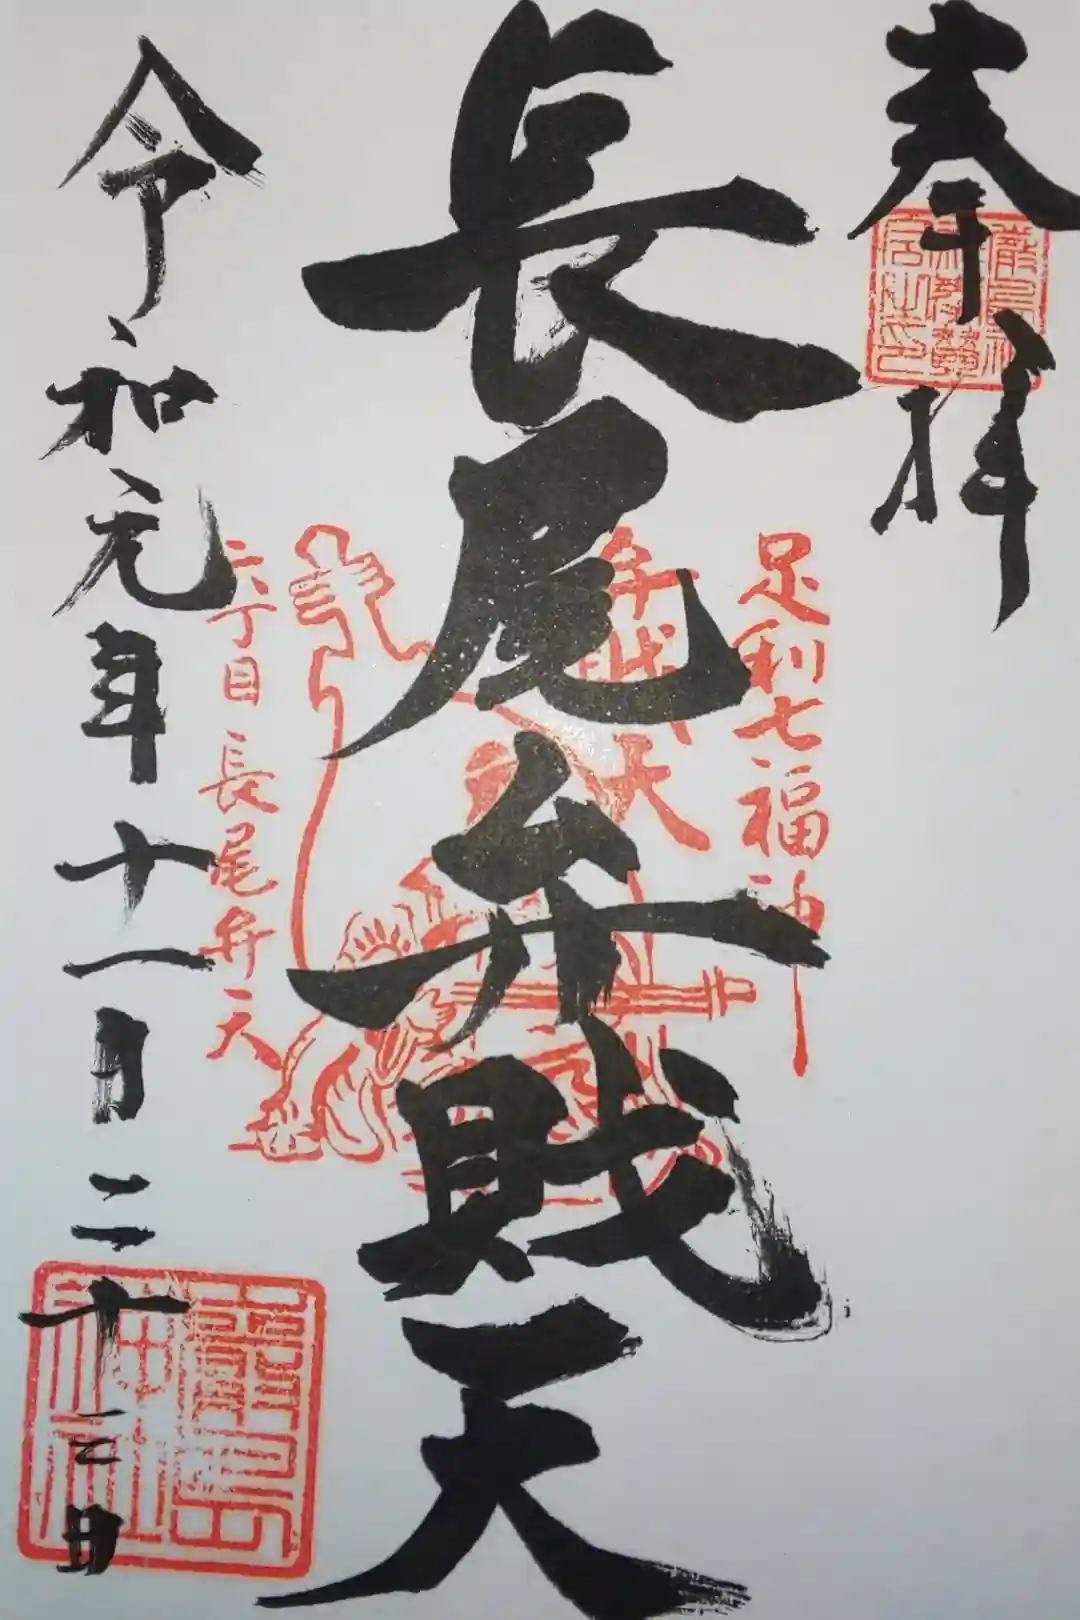 奉拝
足利七福神
弁財天
長尾弁財天
六丁目長尾弁天
令和元年十一月二十三日
厳島神社